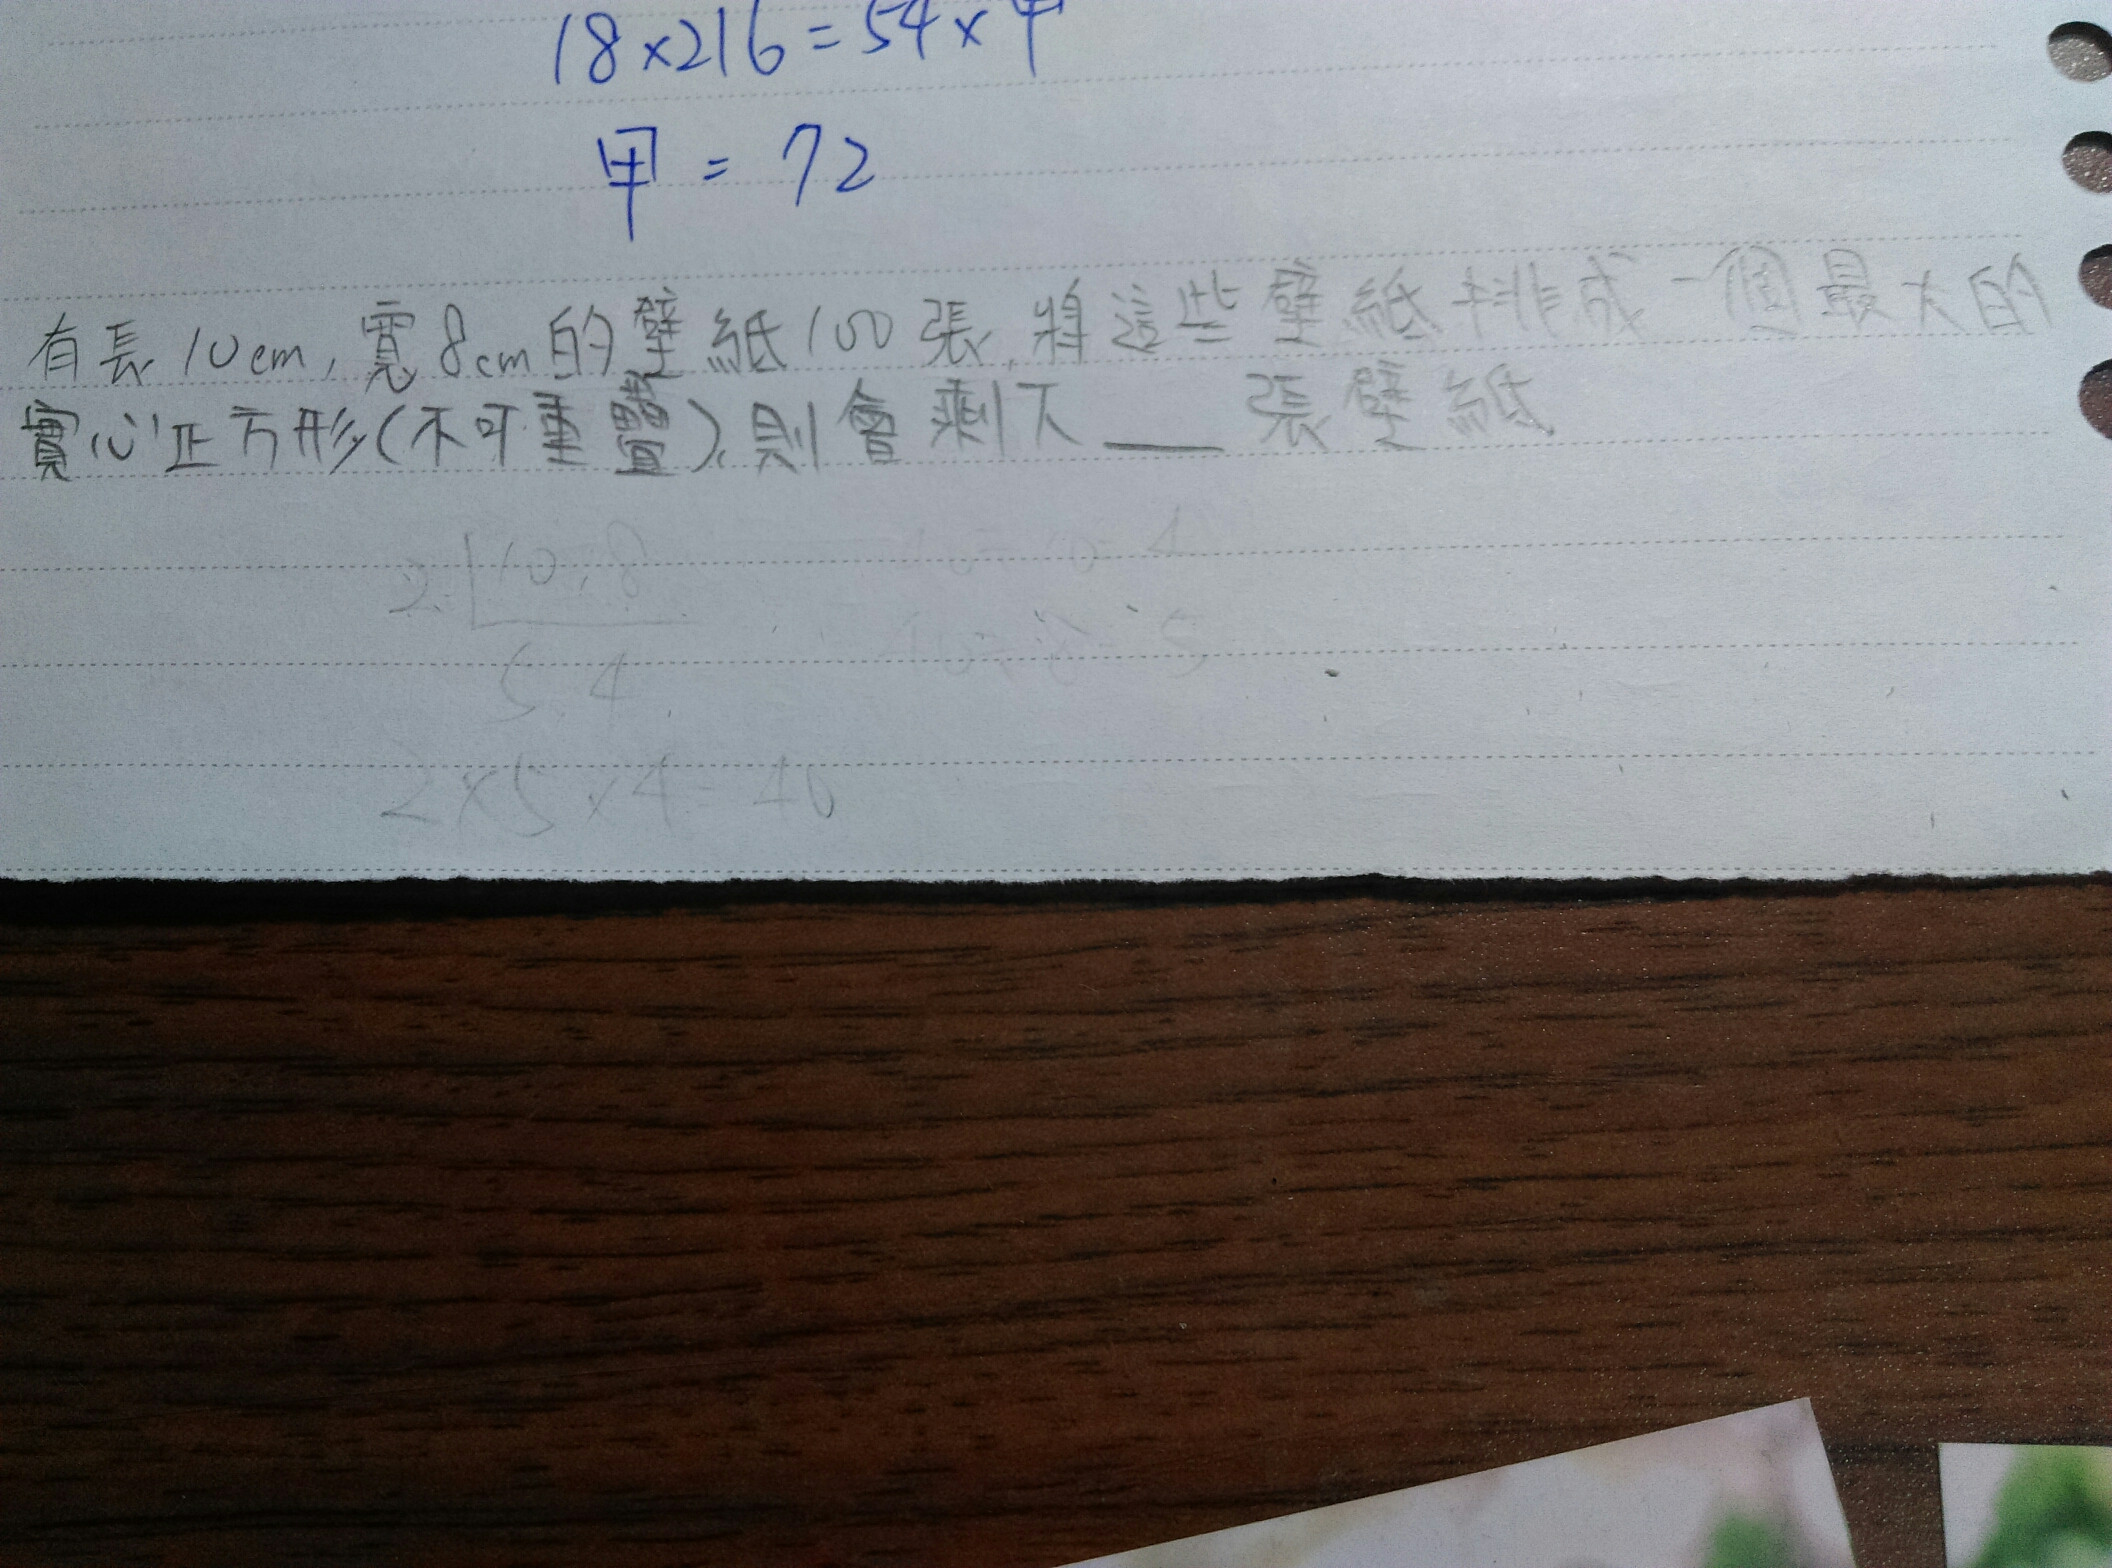 18×216=54×甲
甲=72
有長10cm,寬8cm的壁紙100張,將這些壁紙排成一個最大的
實心正方形(不可重疊),則會剩下___張壁紙
2 10,8
40÷10=4
40÷8=5
5,4
2×5×4=40